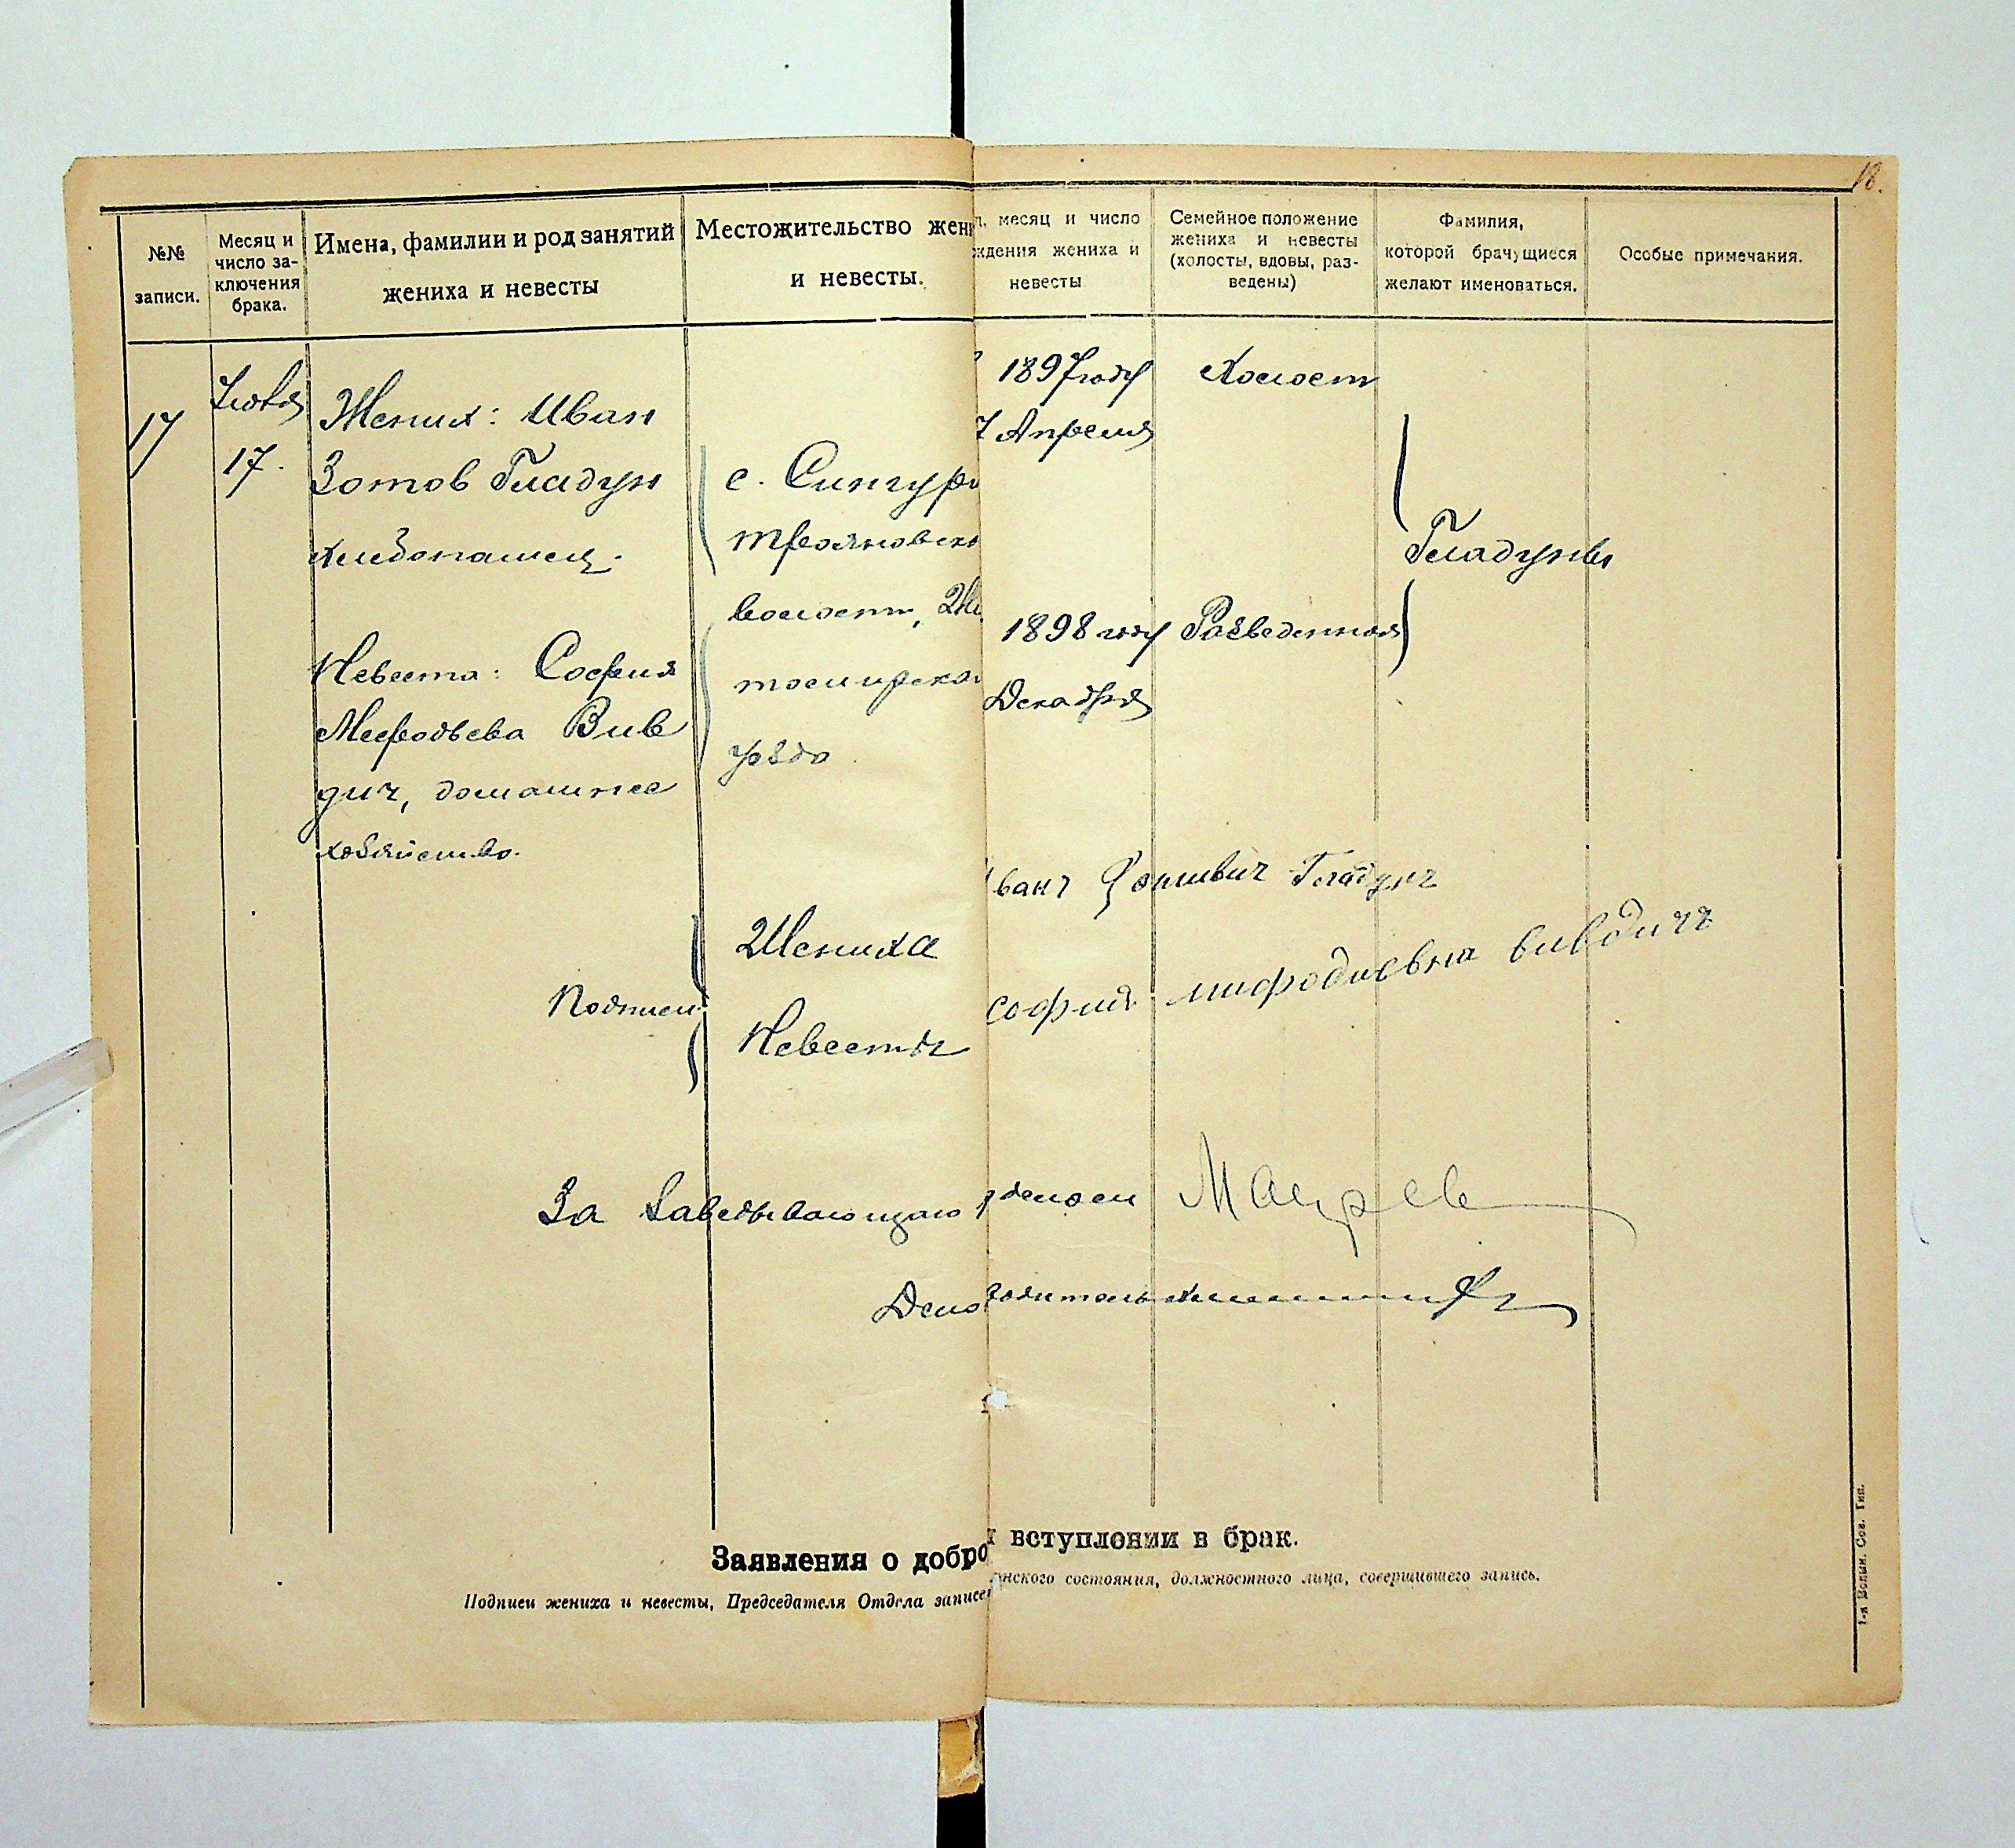 18.
№№
записи.
Месяц и
число за-
ключения
брака.
Имена, фамилии и род занятий
жениха и невесты
Местожительство жени
и невесты.
месяц и число
ждения жениха и
невесты
Семейное положение
жениха и невесты
(холосты, вдовы, раз-
ведены)
Фамилия,
которой брачущиеся
желают именоваться.
Особые примечания.
17
17.
Жених: Иван
Зотов Гладун
хлебопашец.
Невеста: София
Мефодьева Вив
дич, домашнее
хозяйство.
с. Сингур
трояновско
волости, Жи
томирско
уезда
1897 году
7 Апреля
1898 году
Декабря
Холост
Разведенная
Гладуны
Подписи
Жениха
Иванъ Гладунъ
Невесты
София мифодиевна вивдичъ
За Заведывающаго
Дело
Заявления о добро
вступлении в брак.
Подписи жениха и невесты, Председателя Отдела записе
анского состояния, должностного лица, совершившего запись.